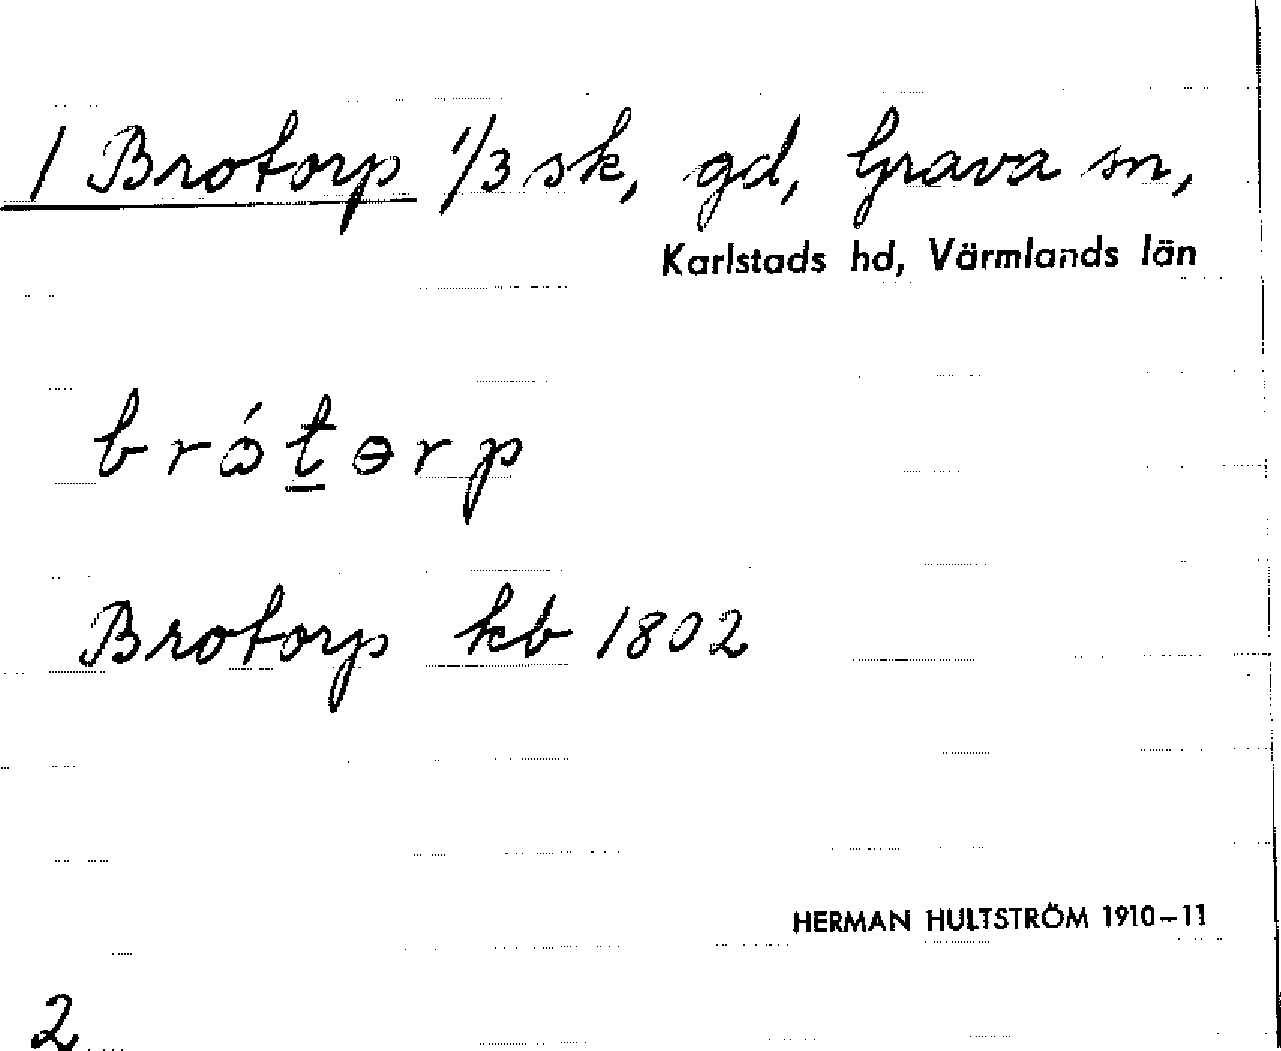 1 Brotorp 1/3 sk, gd, Grava sn,
Karlstads hd, Värmlands län
brǿtɵrp
Brotorp kb 1802
HERMAN HULTSTRÖM 1910–11
2